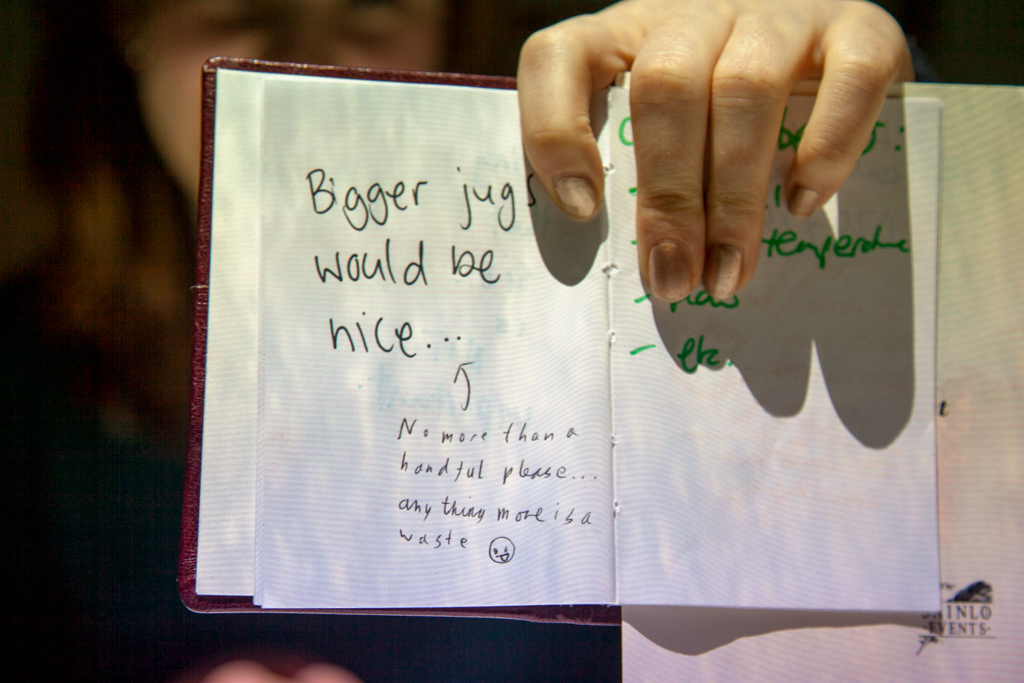 Bigger jugs
would be
nice...
No more than a
handful please...
any thing more is a
waste
temperature
- etc.
INLO
EVENTS